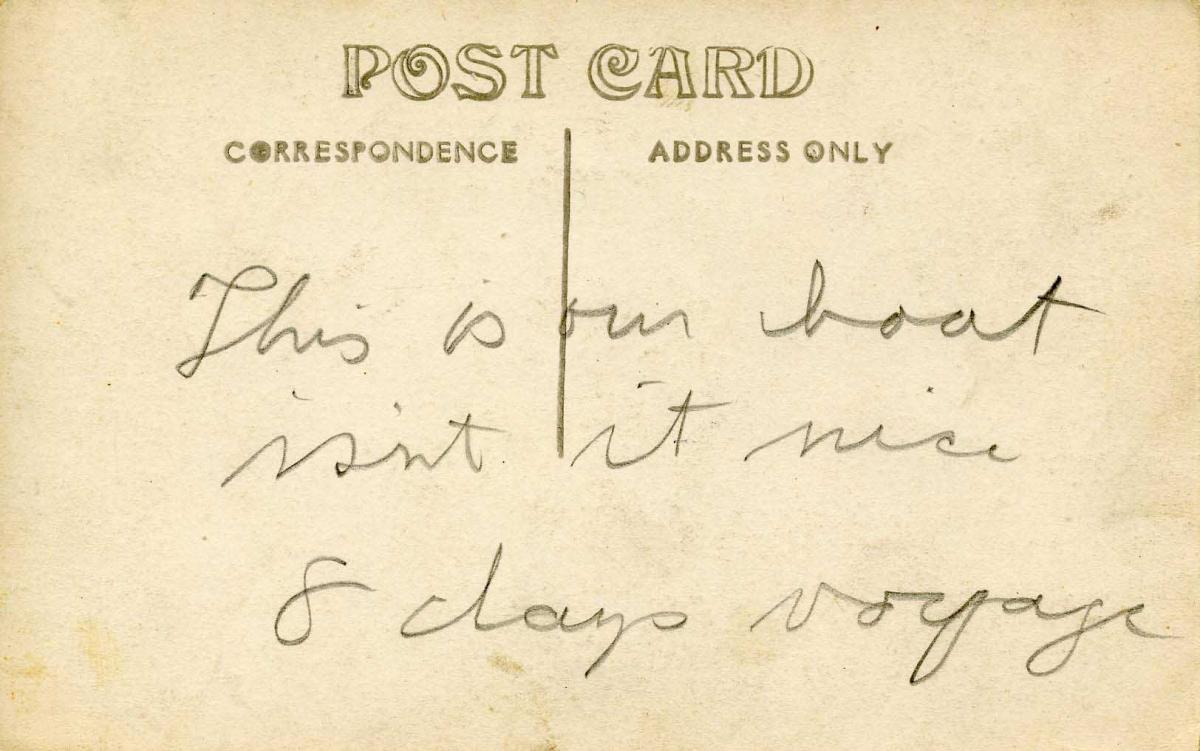 POST CARD
CORRESPONDENCE ADDRESS ONLY
This is our boat
isn't it nice
8 days voyage